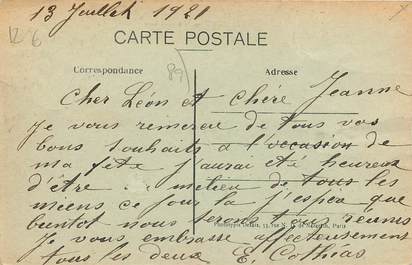 13 Juillet 1921
126
CARTE POSTALE
89
Correspondance
Adresse
Cher Léon et chère Jeanne
Je vous remercie de tous vos
bons souhaits à l'occasion de
ma fête j'aurai été heureux
d'être milieu de tous les
miens ce jour la j'espère que
bientot nous serons tous reunis
Je vous embrasse affectueusement
tous les deux E. Cothias
Phototypie
Paris